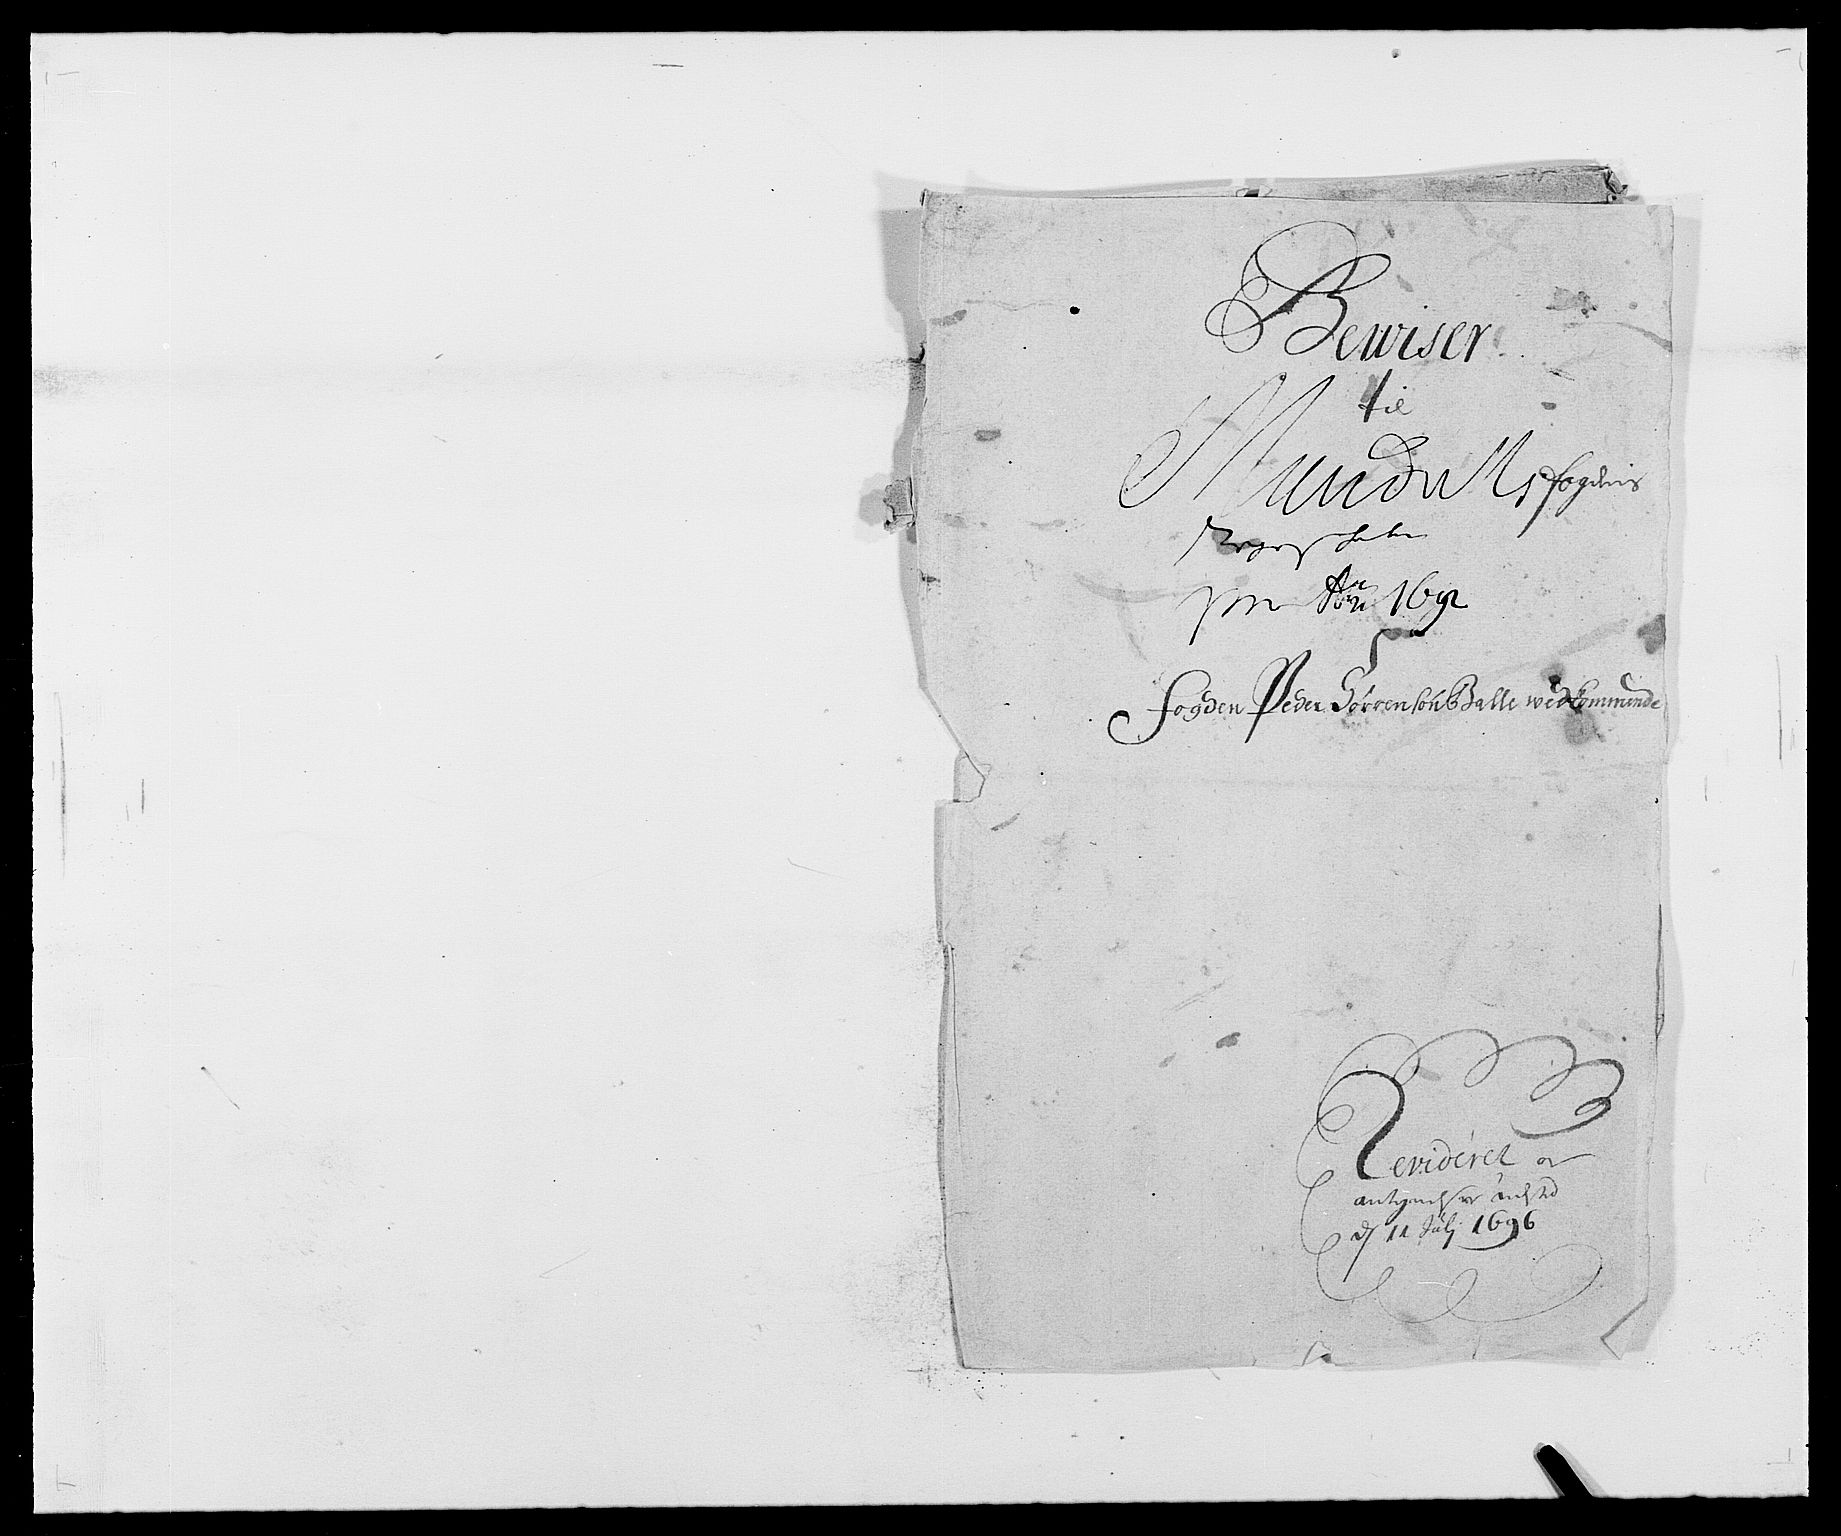 Bewiser
til
Mandals fogderis
Regenskaber
pro Anno 1692
fogden Peder Sörrensön Balle wedkommende
Revideret oc
antegnelser udsted
d 11 Julj 1696